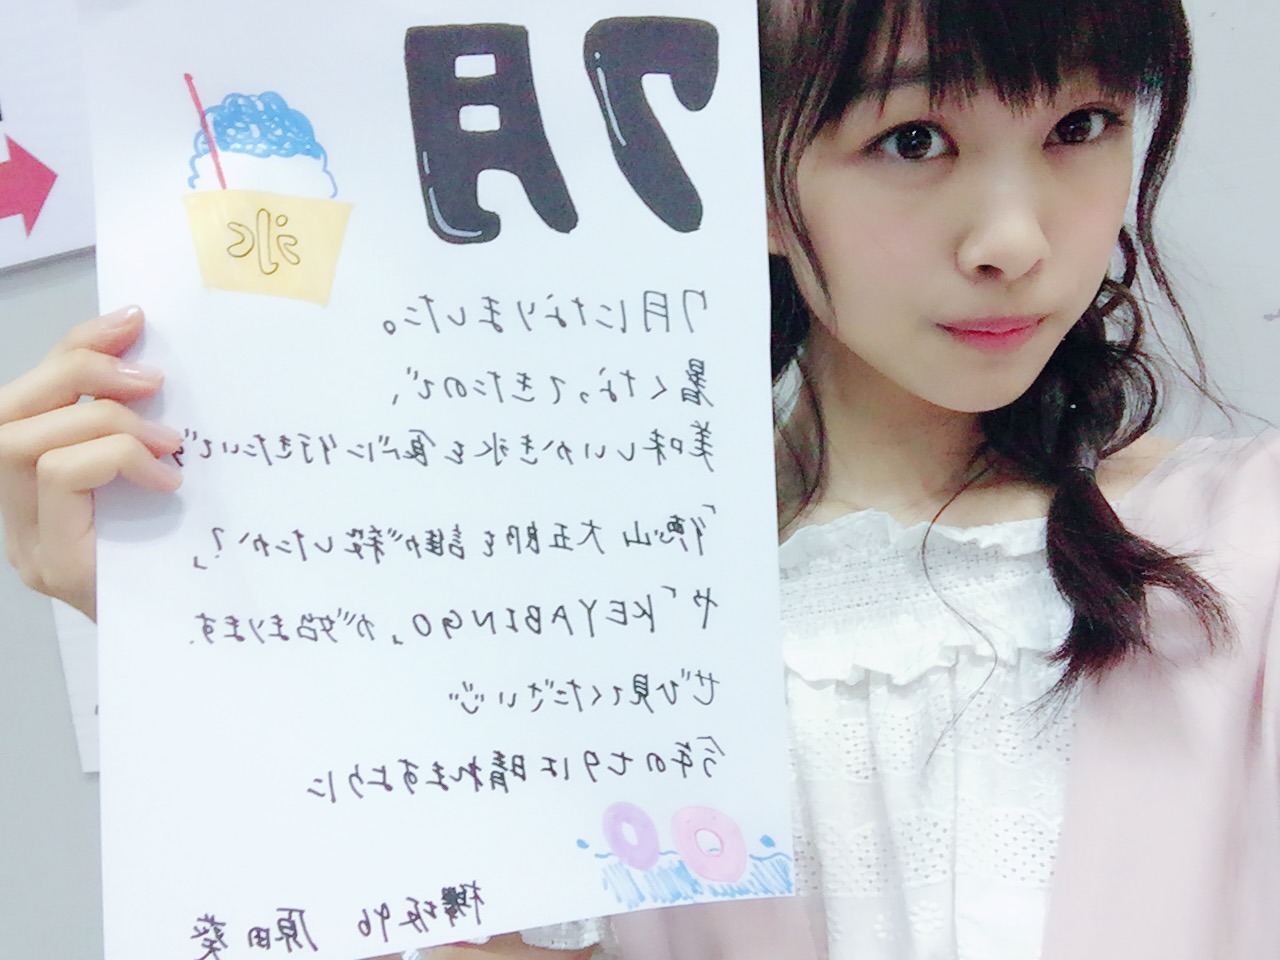 7月
氷
7月になりました。
暑くなってきたので、
美味しいかき氷を食べに行きたいです
「徳山大五郎を誰が殺したか?」
や「KEYABINGO」が始まります.
ぜひ見てください
今年の七夕は晴れますように
欅坂46 原田 葵